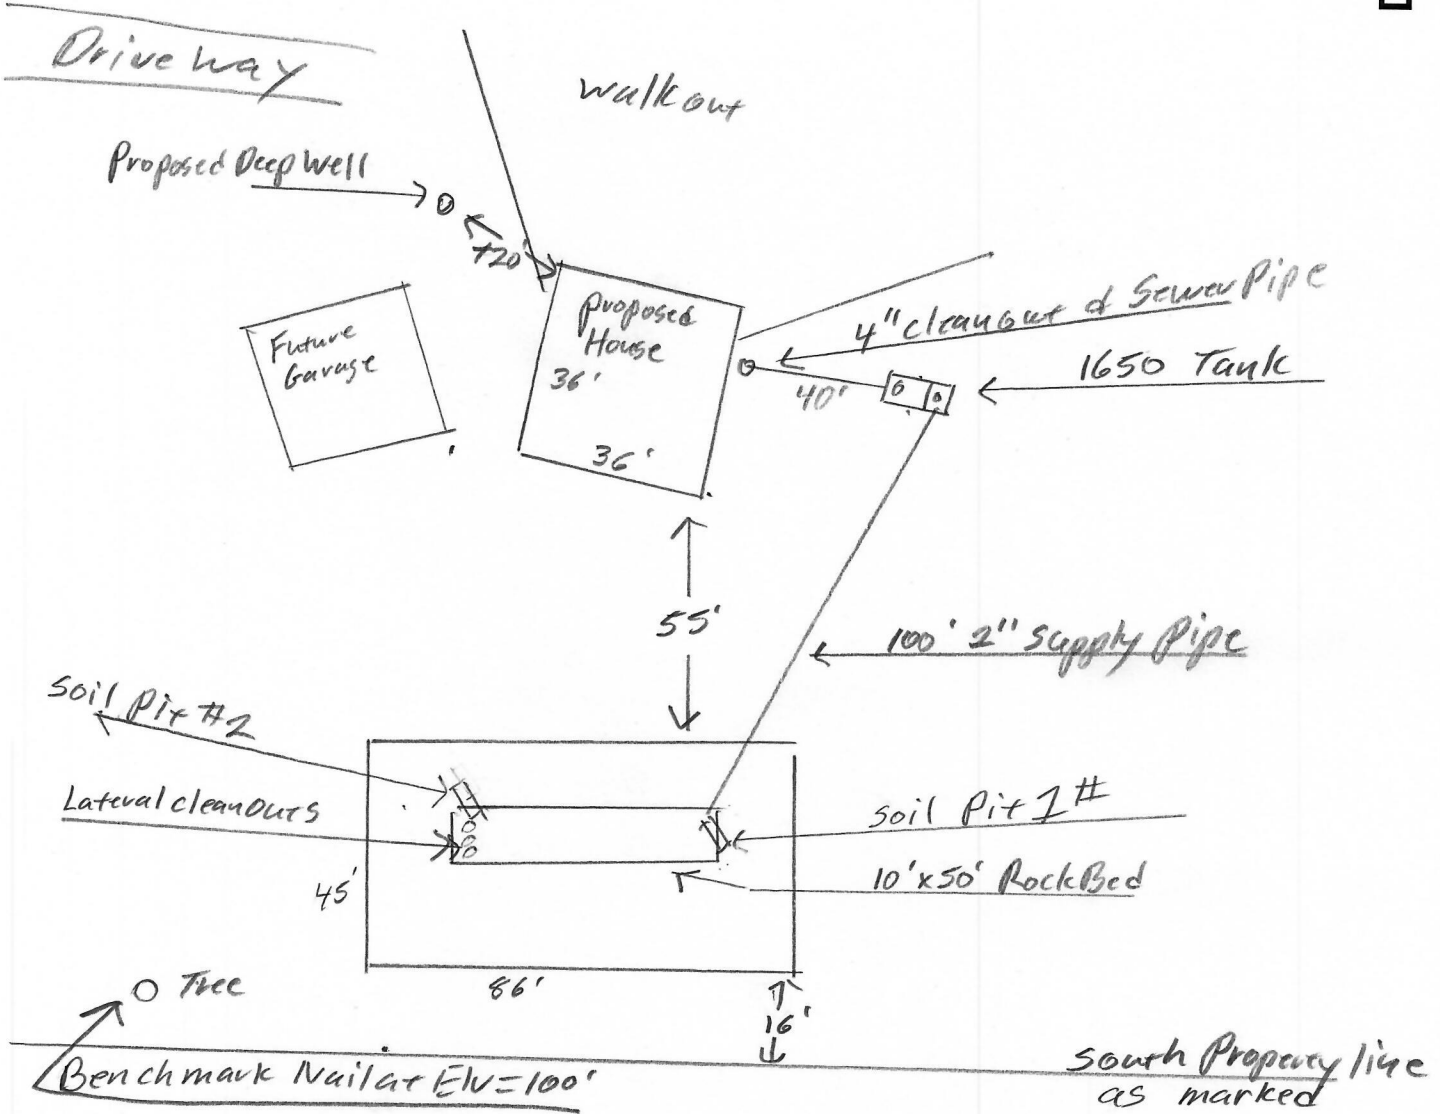 DriveWay
walkout
Proposed Deep Well
+20'
Proposed
House
36'
36'
Future
Garage
4" cleanout & Sewer Pipe
40'
1650 Tank
55'
100' 2" Supply Pipe
Soil Pit #2
Lateral cleanouts
Soil Pit 1#
10'x50' RockBed
45'
86'
16'
Tree
Benchmark Nail at Elv=100'
South Property line
as marked